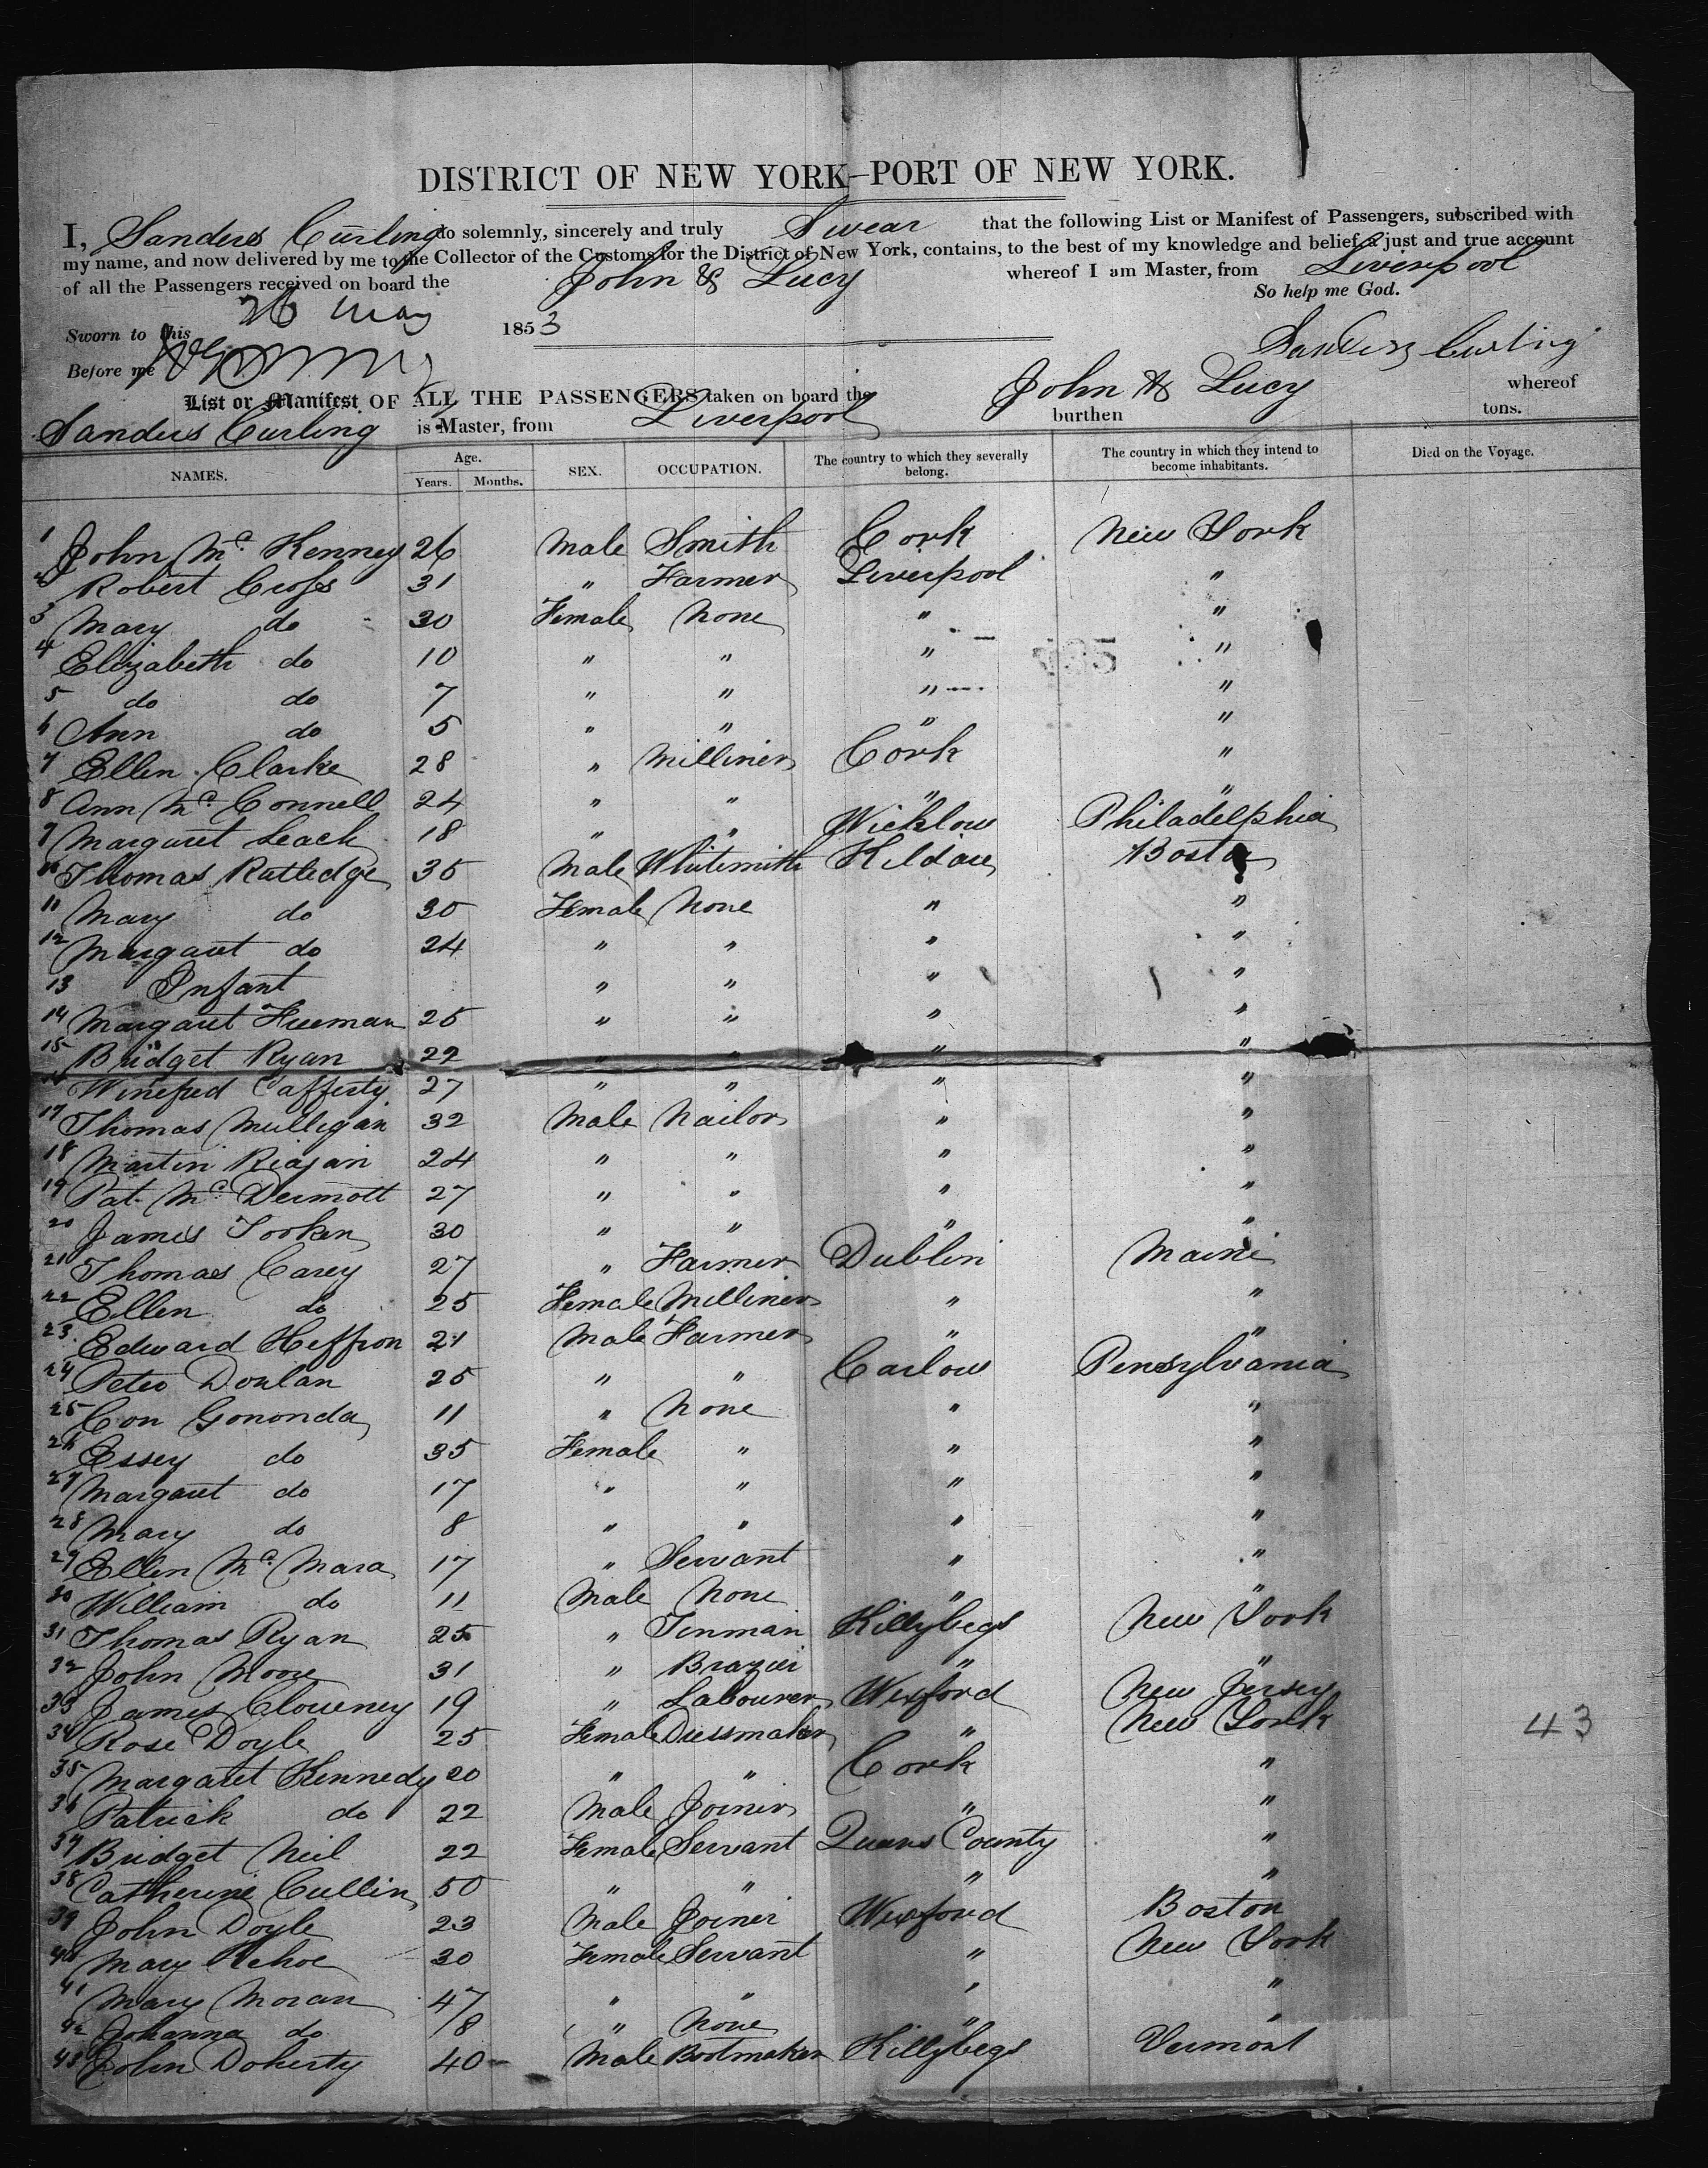 DISTRICT OF NEW YORK–PORT OF NEW YORK.
I, Sanders Curling do solemnly, sincerely and truly Swear that the following List or Manifest of Passengers, subscribed with
my name, and now delivered by me to the Collector of the Customs for the District of New York, contains, to the best of my knowledge and belief, a just and true account
of all the Passengers received on board the John & Lucy whereof I am Master, from Liverpool
So help me God.
Sworn to this 26 May 1853
Sanders Curling
Before me
List or Manifest OF ALL THE PASSENGERS taken on board the John & Lucy whereof
Sanders Curling is Master, from Liverpool burthen tons.
NAMES. Age. Years. Months. SEX. OCCUPATION. The country to which they severally belong. The country in which they intend to become inhabitants. Died on the Voyage.
1 John Mc Kenney 26 Male Smith Cork New York
2 Robert Cross 31 " Farmer Liverpool "
3 Mary do 30 Female None " "
4 Elizabeth do 10 " " " "
5 do do 7 " " " "
6 Ann do 5 " " " "
7 Ellen Clarke 28 " Milliner Cork "
8 Ann Mc Connell 24 " " " "
9 Margaret Leach 18 " " Wicklow Philadelphia
10 Thomas Rutledge 35 Male Whitesmith Kildare Boston
11 Mary do 30 Female None " "
12 Margaret do 24 " " " "
13 Infant " " " "
14 Margaret Freeman 25 " " " "
15 Bridget Ryan 22 " " " "
16 Winefred Cafferty 27 " " " "
17 Thomas Mulligan 32 Male Nailor " "
18 Martin Riajan 24 " " " "
19 Pat. Mc Dermott 27 " " " "
20 James Tooker 30 " " " "
21 Thomas Carey 27 " Farmer Dublin Maine
22 Ellen do 25 Female Milliner " "
23 Edward Heffron 21 Male Farmer " "
24 Peter Donlan 25 " " Carlow Pensylvania
25 Con Gononda 11 " None " "
26 Essey do 35 Female " " "
27 Margaret do 17 " " " "
28 Mary do 8 " " " "
29 Ellen Mc Mara 17 " Servant " "
30 William do 11 Male None " "
31 Thomas Ryan 25 " Tinman Killybegs New York
32 John Moore 31 " Brazier " "
33 James Clowney 19 " Labourer Wexford New Jersey
34 Rose Doyle 25 Female Dressmaker " New York
43
35 Margaret Kennedy 20 " " Cork "
36 Patrick do 22 Male Joiner " "
37 Bridget Neil 22 Female Servant Queens County "
38 Catherine Cullin 50 " " " "
39 John Doyle 23 Male Joiner Wexford Boston
40 Mary Kehoe 30 Female Servant " New York
41 Mary Moran 47 " " " "
42 Johanna do 18 " None " "
43 John Doherty 40 Male Bootmaker Killybegs Vermont